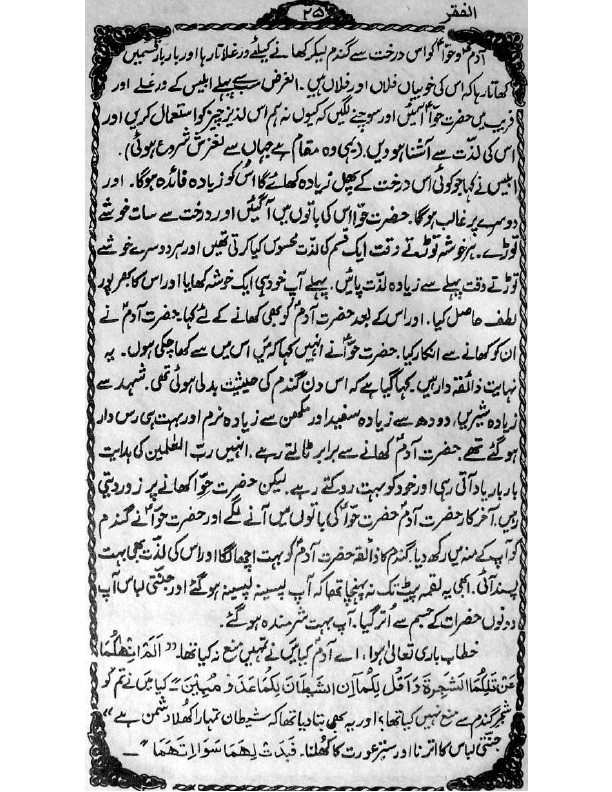 الفقر
۲۵
آدم و حوا کو اس درخت سے گندم لیکر کھانے کیلئے ورغلاتا رہا اور بار بار قسمیں
کھاتا رہا کہ اس کی خوبیاں فلاں اور فلاں ہیں۔ الغرض سب سے پہلے ابلیس کے ورغلے اور
فریب میں حضرت حوا آئیں اور سوچنے لگیں کہ کیوں نہ ہم اس لذیذ چیز کو استعمال کریں اور
اس کی لذت سے آشنا ہوویں۔ (یہی وہ مقام ہے جہاں سے لغزش شروع ہوئی)۔
ابلیس نے کہا جو کوئی اس درخت کے پھل زیادہ کھائے گا اس کو زیادہ فائدہ ہوگا۔ اور
دوسرے پر غالب ہوگا۔ حضرت حوا اس کی باتوں میں آگئیں اور درخت سے سات خوشے
توڑے۔ ہر خوشہ توڑتے وقت ایک قسم کی لذت محسوس کیا کرتی تھیں اور ہر دوسرے خوشے
توڑتے وقت پہلے سے زیادہ لذت پاتیں۔ پہلے آپ خود ہی ایک خوشہ کھایا اور اس کا بھرپور
لطف حاصل کیا۔ اور اس کے بعد حضرت آدمؑ کو بھی کھانے کے لئے کہا۔ حضرت آدمؑ نے
ان کو کھانے سے انکار کیا۔ حضرت حوا نے انہیں کہا کہ میں اس میں سے کھا چکی ہوں۔ یہ
نہایت ذائقہ دار ہیں۔ کہا گیا ہے کہ اس دن گندم کی حیثیت بدلی ہوئی تھی۔ شہد سے
زیادہ شیریں، دودھ سے زیادہ سفید اور مکھن سے زیادہ نرم اور بہت ہی رس دار
ہو گئے تھے۔ حضرت آدمؑ کھانے سے برابر ٹالتے رہے۔ انہیں ربّ العٰلمین کی ہدایت
بار بار یاد آتی رہی اور خود کو بہت روکتے رہے۔ لیکن حضرت حوا کھانے پر زور دیتی
رہیں۔ آخر کار حضرت آدمؑ حضرت حوا کی باتوں میں آنے لگے اور حضرت حوا نے گندم
کو آپ کے منہ میں رکھ دیا۔ گندم کا ذائقہ حضرت آدمؑ کو بہت اچھا لگا اور اس کی لذت بھی بہت
پسند آئی۔ ابھی یہ لقمہ پیٹ تک نہ پہنچا تھا کہ آپ پسینہ پسینہ ہو گئے اور جنّتی لباس آپ
دونوں حضرات کے جسم سے اُتر گیا۔ آپ بہت شرمندہ ہو گئے۔
خطاب باری تعالیٰ ہوا، اے آدمؑ کیا میں نے تمہیں منع نہ کیا تھا۔ "اَلَمْ اَنْهٰكُمَا
عَنْ تِلْكُمَا الشَّجَرَةَ وَ اَقُلْ لَّكُمَا اِنَّ الشَّیْطَانَ لَكُمَا عَدُوٌّ مُّبِیْنَ ۔ کیا میں نے تم کو
شجرِ گندم سے منع نہیں کیا تھا؟ اور یہ بھی بتا دیا تھا کہ شیطان تمہارا کھلا دشمن ہے"
جنّتی لباس کا اترنا اور ستر عورت کا کھلنا۔ فَبَدَتْ لَهُمَا سَوْاٰتُهُمَا "۔